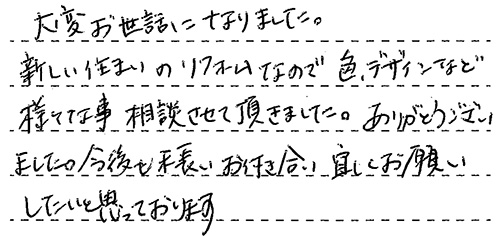 大変お世話になりました。
新しい住まいのリフォームなので色、デザインなど
様々な事相談させて頂きました。ありがとうござい
ました。今後も末長いお付き合い宜しくお願い
したいと思っております